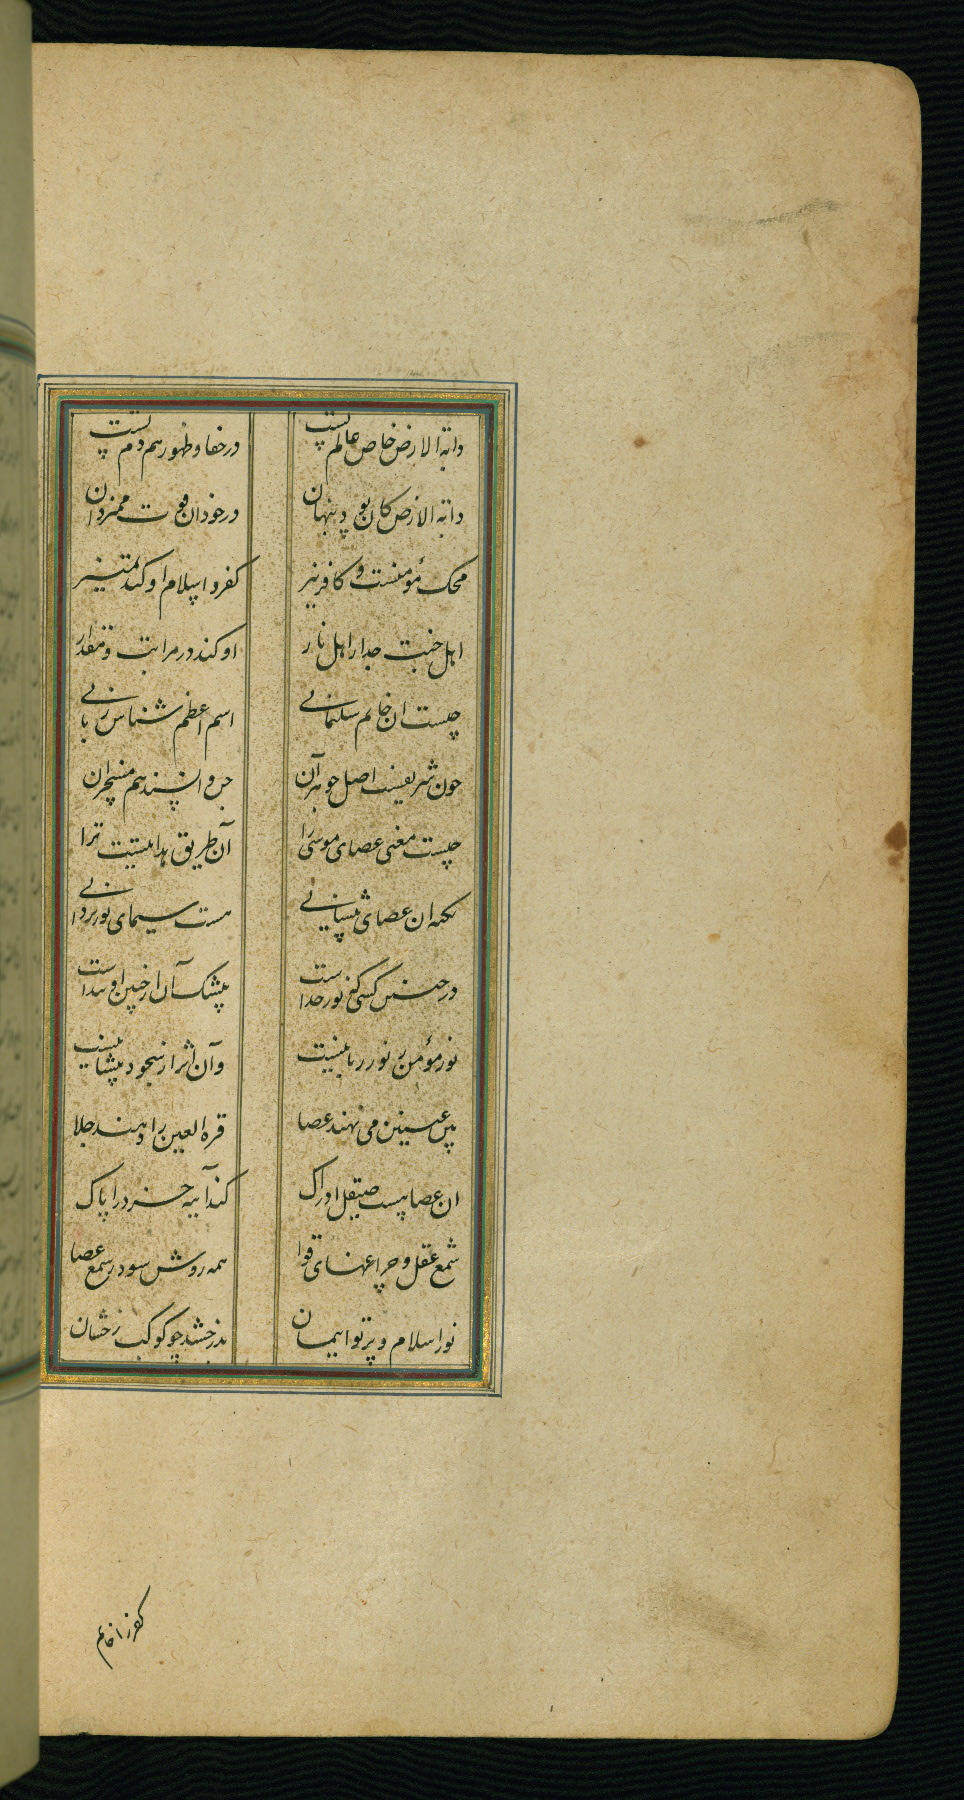 دابة الارض خاص عالم پست در خفا و ظهور هم دم پست
دابة الارض کان بود پنهان در خود ان قوت ممیز دان
محک مؤمنست و کافر نیز کفر و اسلام او کند تمییز
اهل جنت جدا ز اهل نار او کند در مراتب و مقدار
چیست ان خاتم سلیمانی اسم اعظم شناس ربانی
چون شریفست اصل جوهر آن جن و انسند هم مسخر ان
چیست معنی عصای موسی را آن طریق هدایتیست ترا
نکته ان عصای پیشانی هست سیمای نور یزدانی
در جنس کسی که نور خداست بیشک آن از جبین او پیداست
نور مؤمن ز نور ربانیست وآن اثر از سجود پیشانیست
بین عینین می نهند عصا قرة العین را دهند جلا
ان عصا چیست صیقل ادراک کند آیینه خرد را پاک
شمع عقل و چراغهای قوا همه روشن شود ز شمع عصا
نور اسلام و پرتو ایمان بدرخشد چو کوکب رخشان
کفر از خاتم